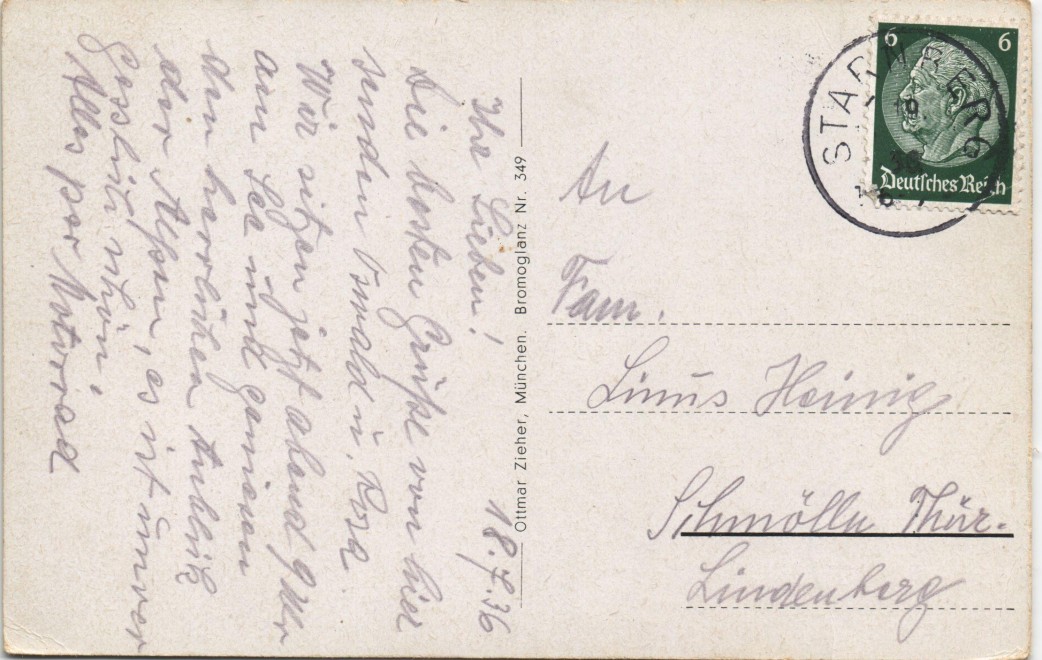 18.7.36
Ihr Lieben!
Die besten Grüße von hier
senden Oswald u. Rosa
Wir sitzen jetzt abend 9 Uhr
am See und geniesen
den herrlichen Anblick
der Alpen, es ist unver
gesslich schön!
Alles per Motorrad
Ottmar Zieher, München. Bromoglanz Nr. 349
STARNBERG
19
36
6
6
Deutsches Reich
An
Fam.
Linus Heinig
Schmölln Thür.
Lindenberg